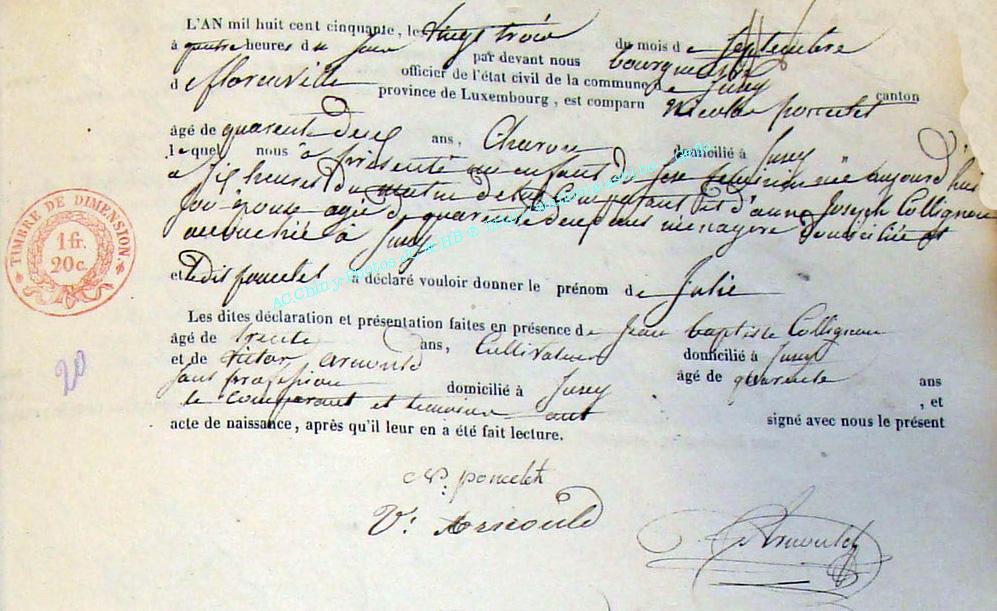 L'AN mil huit cent cinquante, le vingt trois du mois de septembre
à quatre heures du soir par devant nous bourgmestre
officier de l'état civil de la commune de Jusey canton
de florenville province de Luxembourg, est comparu Nicolas poncelet
âgé de quarente deux ans, Charon domicilié à Jusey
lequel nous a présenté un enfant du sexe feminin née aujourd'hui
à dix heures du matin de Comparant et d'anne Joseph Collignon
son épouse agée de quarente deux ans ménagère domiciliée et
accouchée à Jusey
et ledit poncelet a déclaré vouloir donner le prénom de Julie
Les dites déclaration et présentation faites en présence de Jean baptiste Collignon
âgé de trente ans, Cultivateur domicilié à Jusey
et de Victor arnould âgé de quarente ans
sans profession domicilié à Jusey , et
le comparant et temoins ont signé avec nous le présent
acte de naissance, après qu'il leur en a été fait lecture.
N: poncelet
V: Arnould
Arnould
TIMBRE DE DIMENSION.
1 fr.
20 c.
20